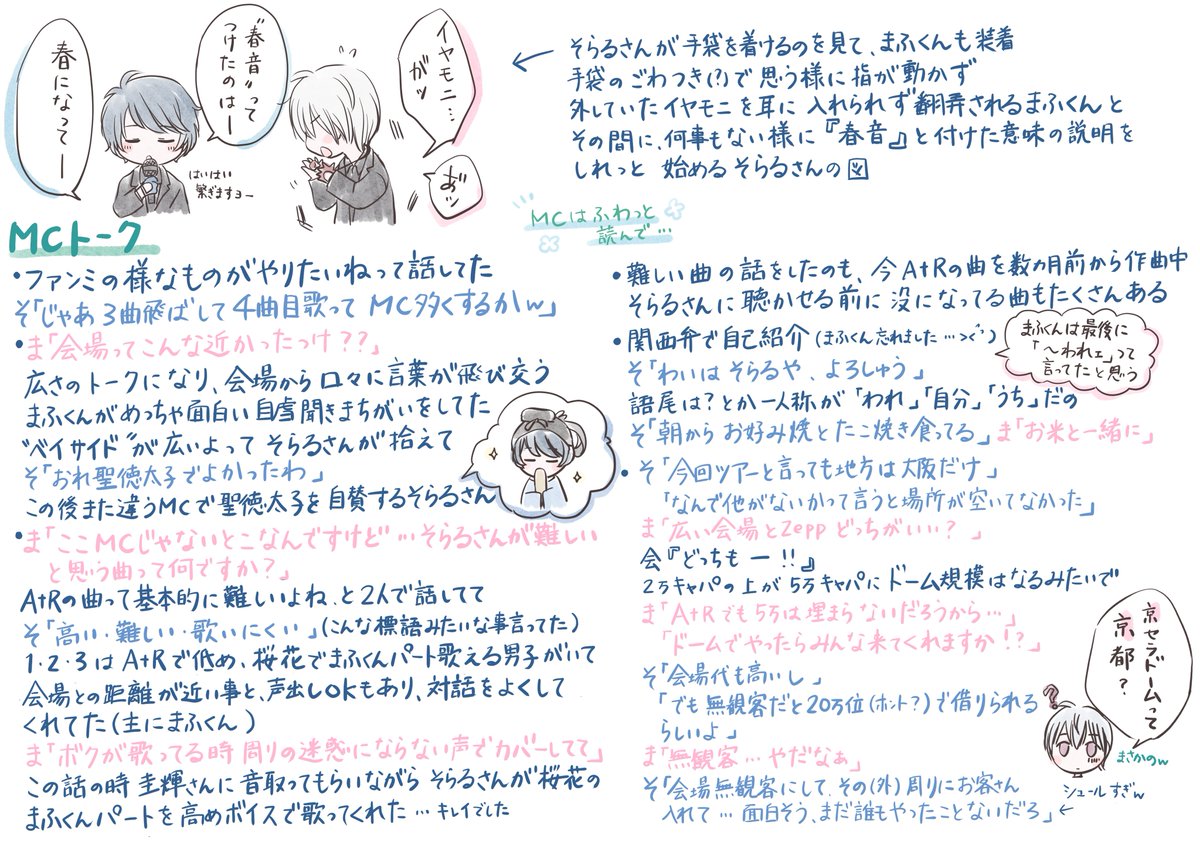 イヤモニ…
がッ
おッ
"春音"って
つけたのはー
春になってー
はいはい
繋ぎますョー
← そらるさんが手袋を着けるのを見て、まふくんも装着
手袋のごわつき(?)で思う様に指が動かず
外していたイヤモニを耳に入れられず翻弄されるまふくんと
その間に、何事もない様に『春音』と付けた意味の説明を
しれっと 始めるそらるさんの図
MCトーク
MCはふわっと
読んで…
・ファンミの様なものがやりたいねって話してた
そ「じゃあ3曲飛ばして4曲目歌ってMC多くするかw」
・ま「会場ってこんな近かったっけ??」
広さのトークになり、会場から口々に言葉が飛び交う
まふくんがめっちゃ面白い自虐聞きまちがいをしてた
"ベイサイド"が広いよって そらるさんが拾えて
そ「おれ聖徳太子でよかったわ」
この後また違うMCで聖徳太子を自賛するそらるさん
・ま「ここMCじゃないとこなんですけど…そらるさんが難しい
と思う曲って何ですか?」
A+Rの曲って基本的に難しいよね、と2人で話してて
そ「高い・難しい・歌いにくい」(こんな標語みたいな事言ってた)
1・2・3はA+Rで低め、桜花でまふくんパート歌える男子がいて
会場との距離が近い事と、声出しOKもあり、対話をよくして
くれてた(主にまふくん)
ま「ボクが歌ってる時周りの迷惑にならない声でカバーしてて」
この話の時 圭輝さんに音取ってもらいながらそらるさんが桜花の
まふくんパートを高めボイスで歌ってくれた…キレイでした
・難しい曲の話をしたのも、今A+Rの曲を数ヵ月前から作曲中
そらるさんに聴かせる前に没になってる曲もたくさんある
・関西弁で自己紹介(まふくん忘れました…)
まふくんは最後に
「〜われェ」って
言ってたと思う
そ「わいはそらるや、よろしゅう」
語尾は?とか一人称が「われ」「自分」「うち」だの
そ「朝からお好み焼とたこ焼き食ってる」ま「お米と一緒に」
・そ「今回ツアーと言っても地方は大阪だけ」
「なんで他がないかって言うと場所が空いてなかった」
ま「広い会場とZeppどっちがいい?」
会『どっちもー!!』
2万キャパの上が5万キャパにドーム規模はなるみたいで
ま「A+Rでも5万は埋まらないだろうから…」
「ドームでやったらみんな来てくれますか!?」
そ「会場代も高いし」
「でも無観客だと20万位(ホント?)で借りられる
らしいよ」
ま「無観客…やだなぁ」
そ「会場無観客にして、その(外)周りにお客さん
入れて…面白そう、まだ誰もやったことないだろ」←
京セラドームって
京都?
?
まさかのw
シュールすぎw